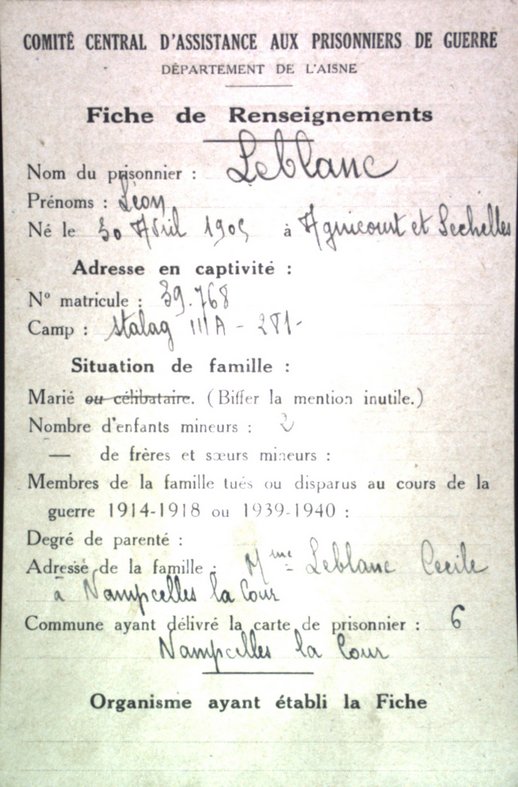 COMITÉ CENTRAL D'ASSISTANCE AUX PRISONNIERS DE GUERRE
DÉPARTEMENT DE L'AISNE
Fiche de Renseignements
Nom du prisonnier : Leblanc
Prénoms : Léon
Né le 30 Avril 1905 à Agnicourt et Sechelles
Adresse en captivité :
N° matricule : 39.768
Camp : Stalag III A - 281-
Situation de famille :
Marié ou célibataire. (Biffer la mention inutile.)
Nombre d'enfants mineurs : 2
— de frères et sœurs mineurs :
Membres de la famille tués ou disparus au cours de la
guerre 1914-1918 ou 1939-1940 :
Degré de parenté :
Adresse de la famille : Mme Leblanc Cecile
à Nampcelles la Cour
Commune ayant délivré la carte de prisonnier : 6
Nampcelles la Cour
Organisme ayant établi la Fiche